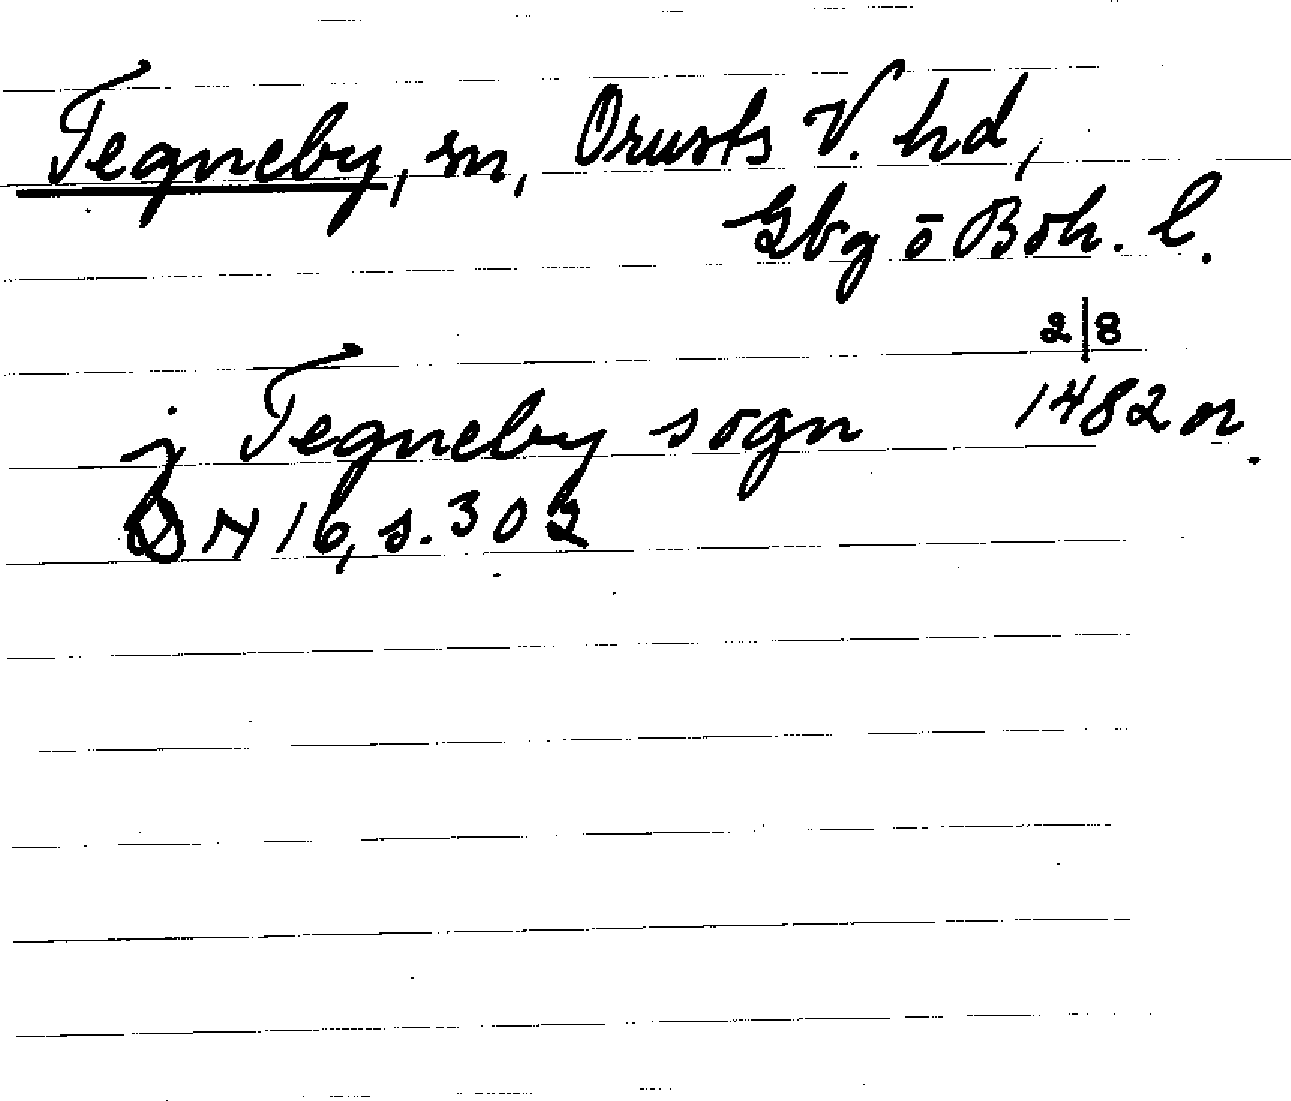 Tegneby, sn, Orusts V. hd,
Gbg ō Boh. l.
2/8
j Tegneby sogn 1482 or.
DN 16, s. 302